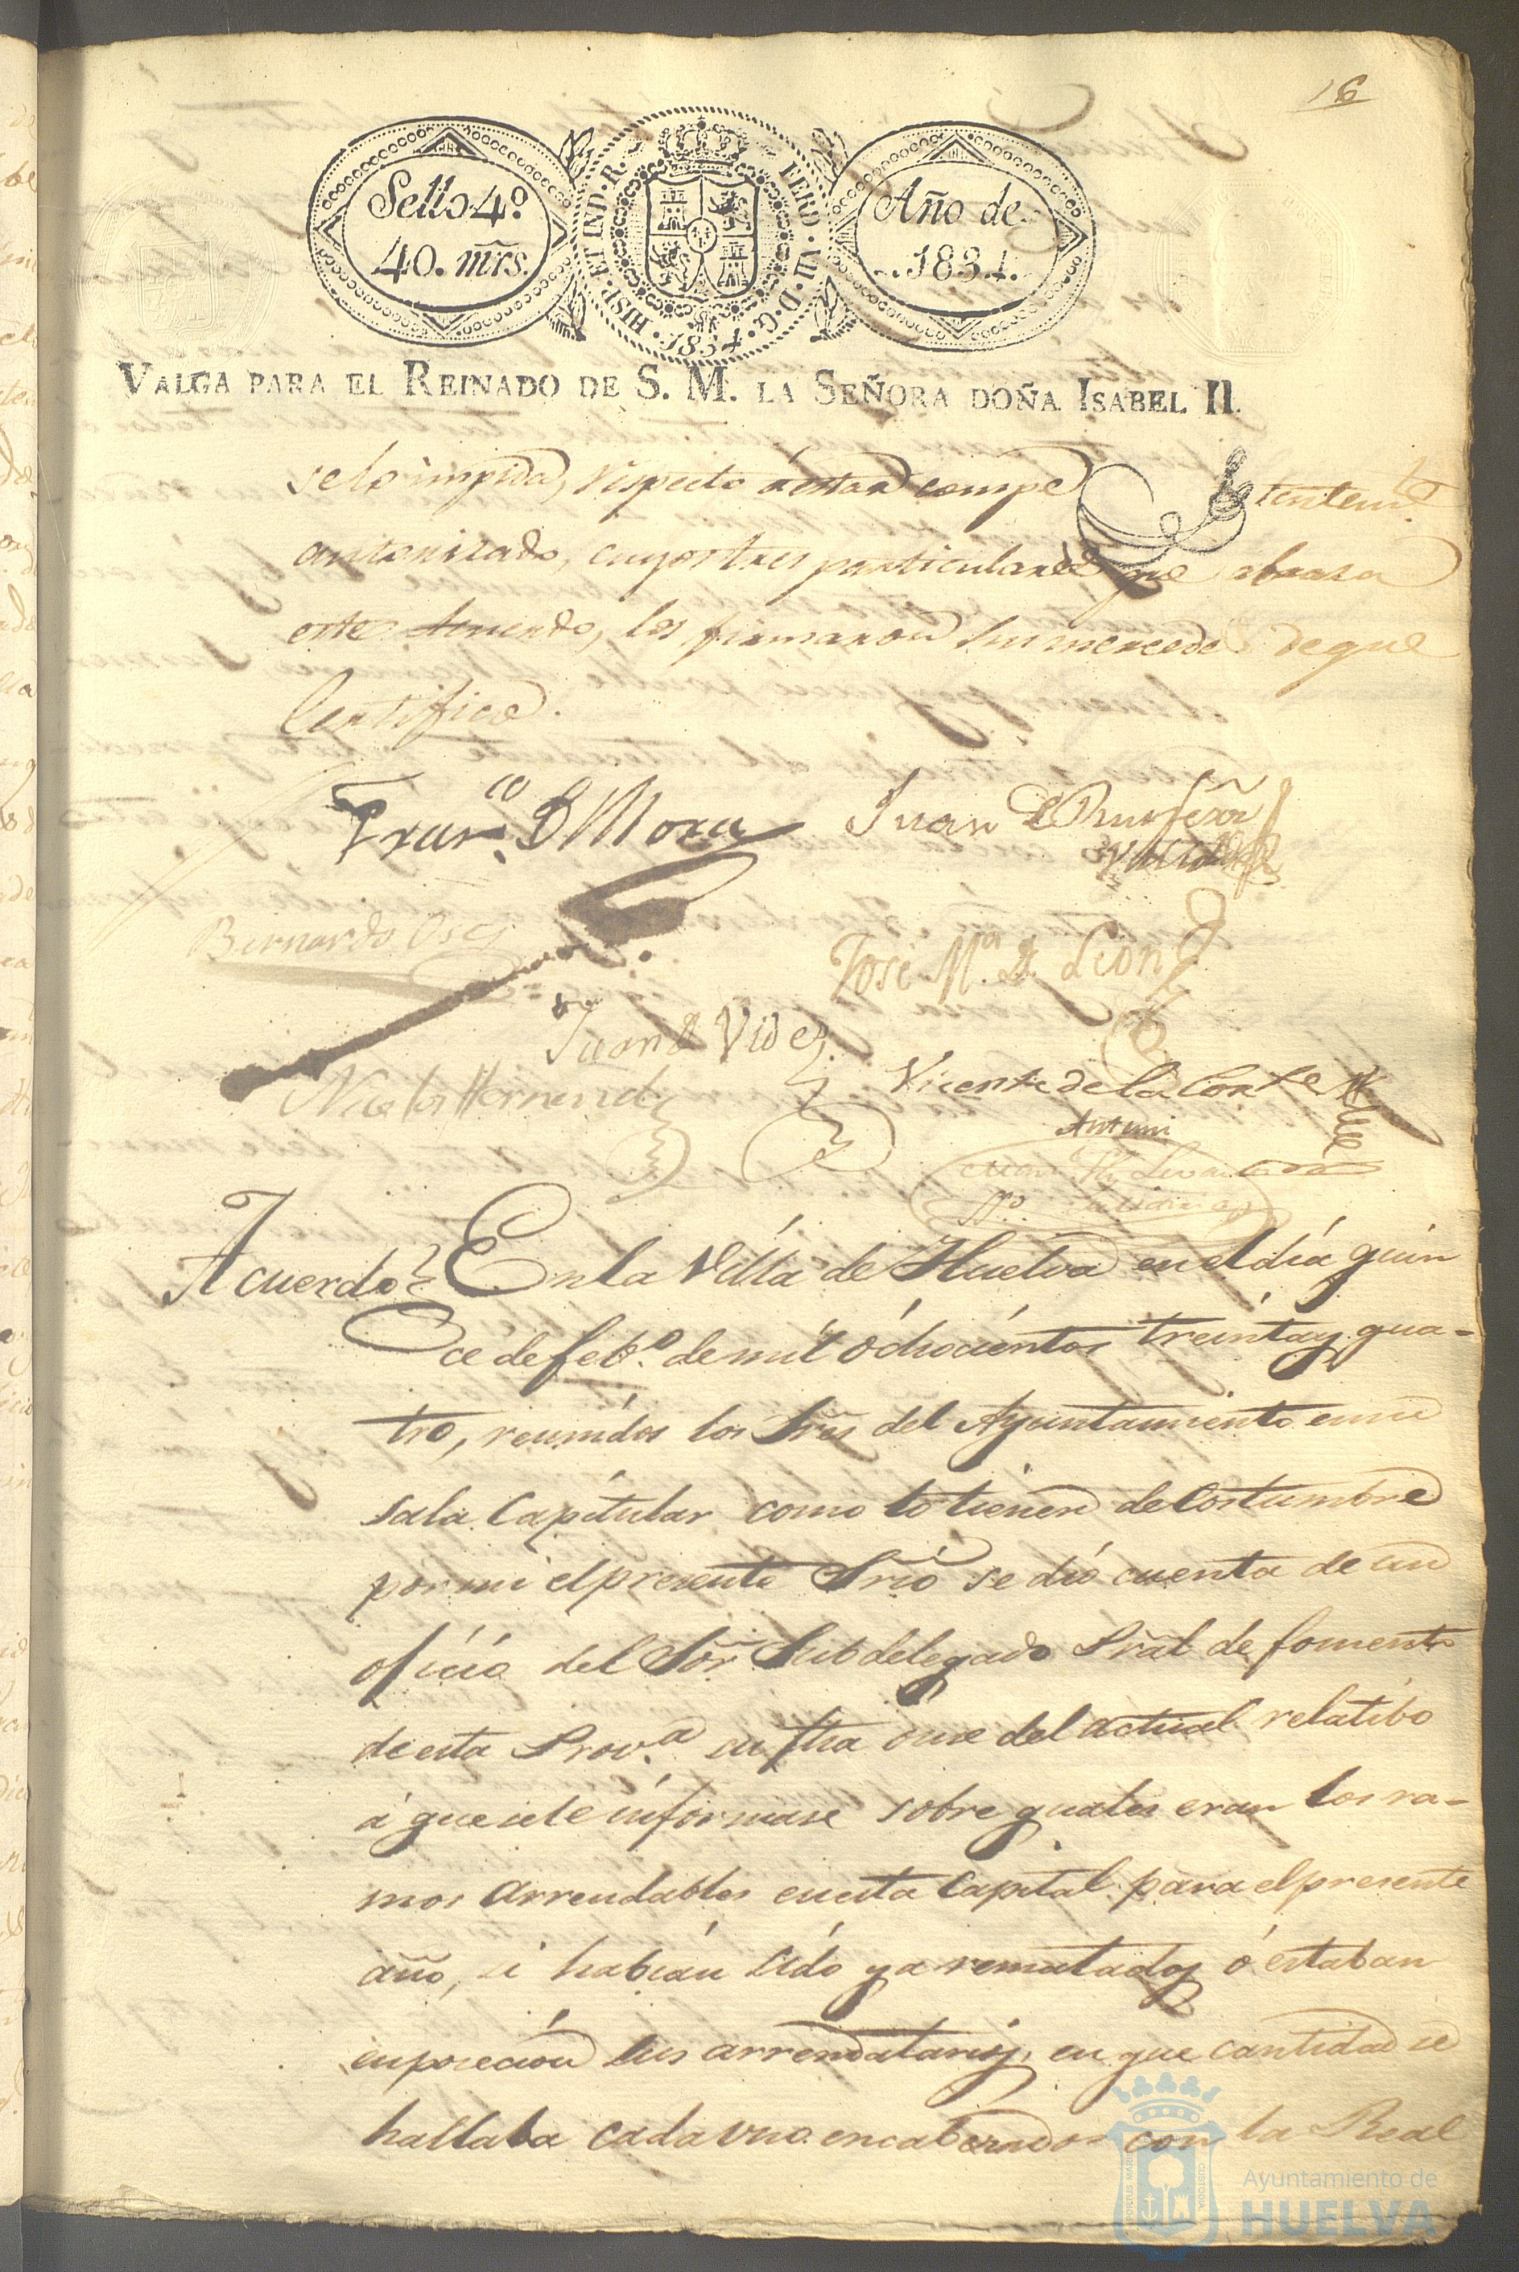 16
Sello 4º
40. mrs.
HISP. ET IND. R.
FERD. VII. D. G.
1834.
Año de
1834.
VALGA PARA EL REINADO DE S. M. LA SEÑORA DOÑA ISABEL II.
se lo impida, respecto á estar compe tentemte
autorizado, cuyos tres particulares que abraza
este Acuerdo, los firmaron sus mercedes de que
Certifico.
Franco. D Mora
Juan
Bernardo
José Mª. de Leon
Juan de Vides
Nicolas Hernandz
Vicente de la Corte
Antemi
Acuerdo
En la Villa de Huelva en el día quin
ce de febº. de mil ochocientos treinta y qua-
tro, reunidos los Sres del Ayuntamiento en su
sala Capitular como lo tienen de Costumbre
por mi el presente Srio se dió cuenta de un
oficio del Sor Subdelegado Pral de fomento
de esta Provª. su fha once del actual relatibo
á que se le informase sobre quales eran los ra-
mos arrendables en esta Capital para el presente
año, si habian sido ya rematados ó estaban
en posecion sus arrendatarios, en que cantidad se
hallaba cada uno encabezado con la Real
Ayuntamiento de
HUELVA